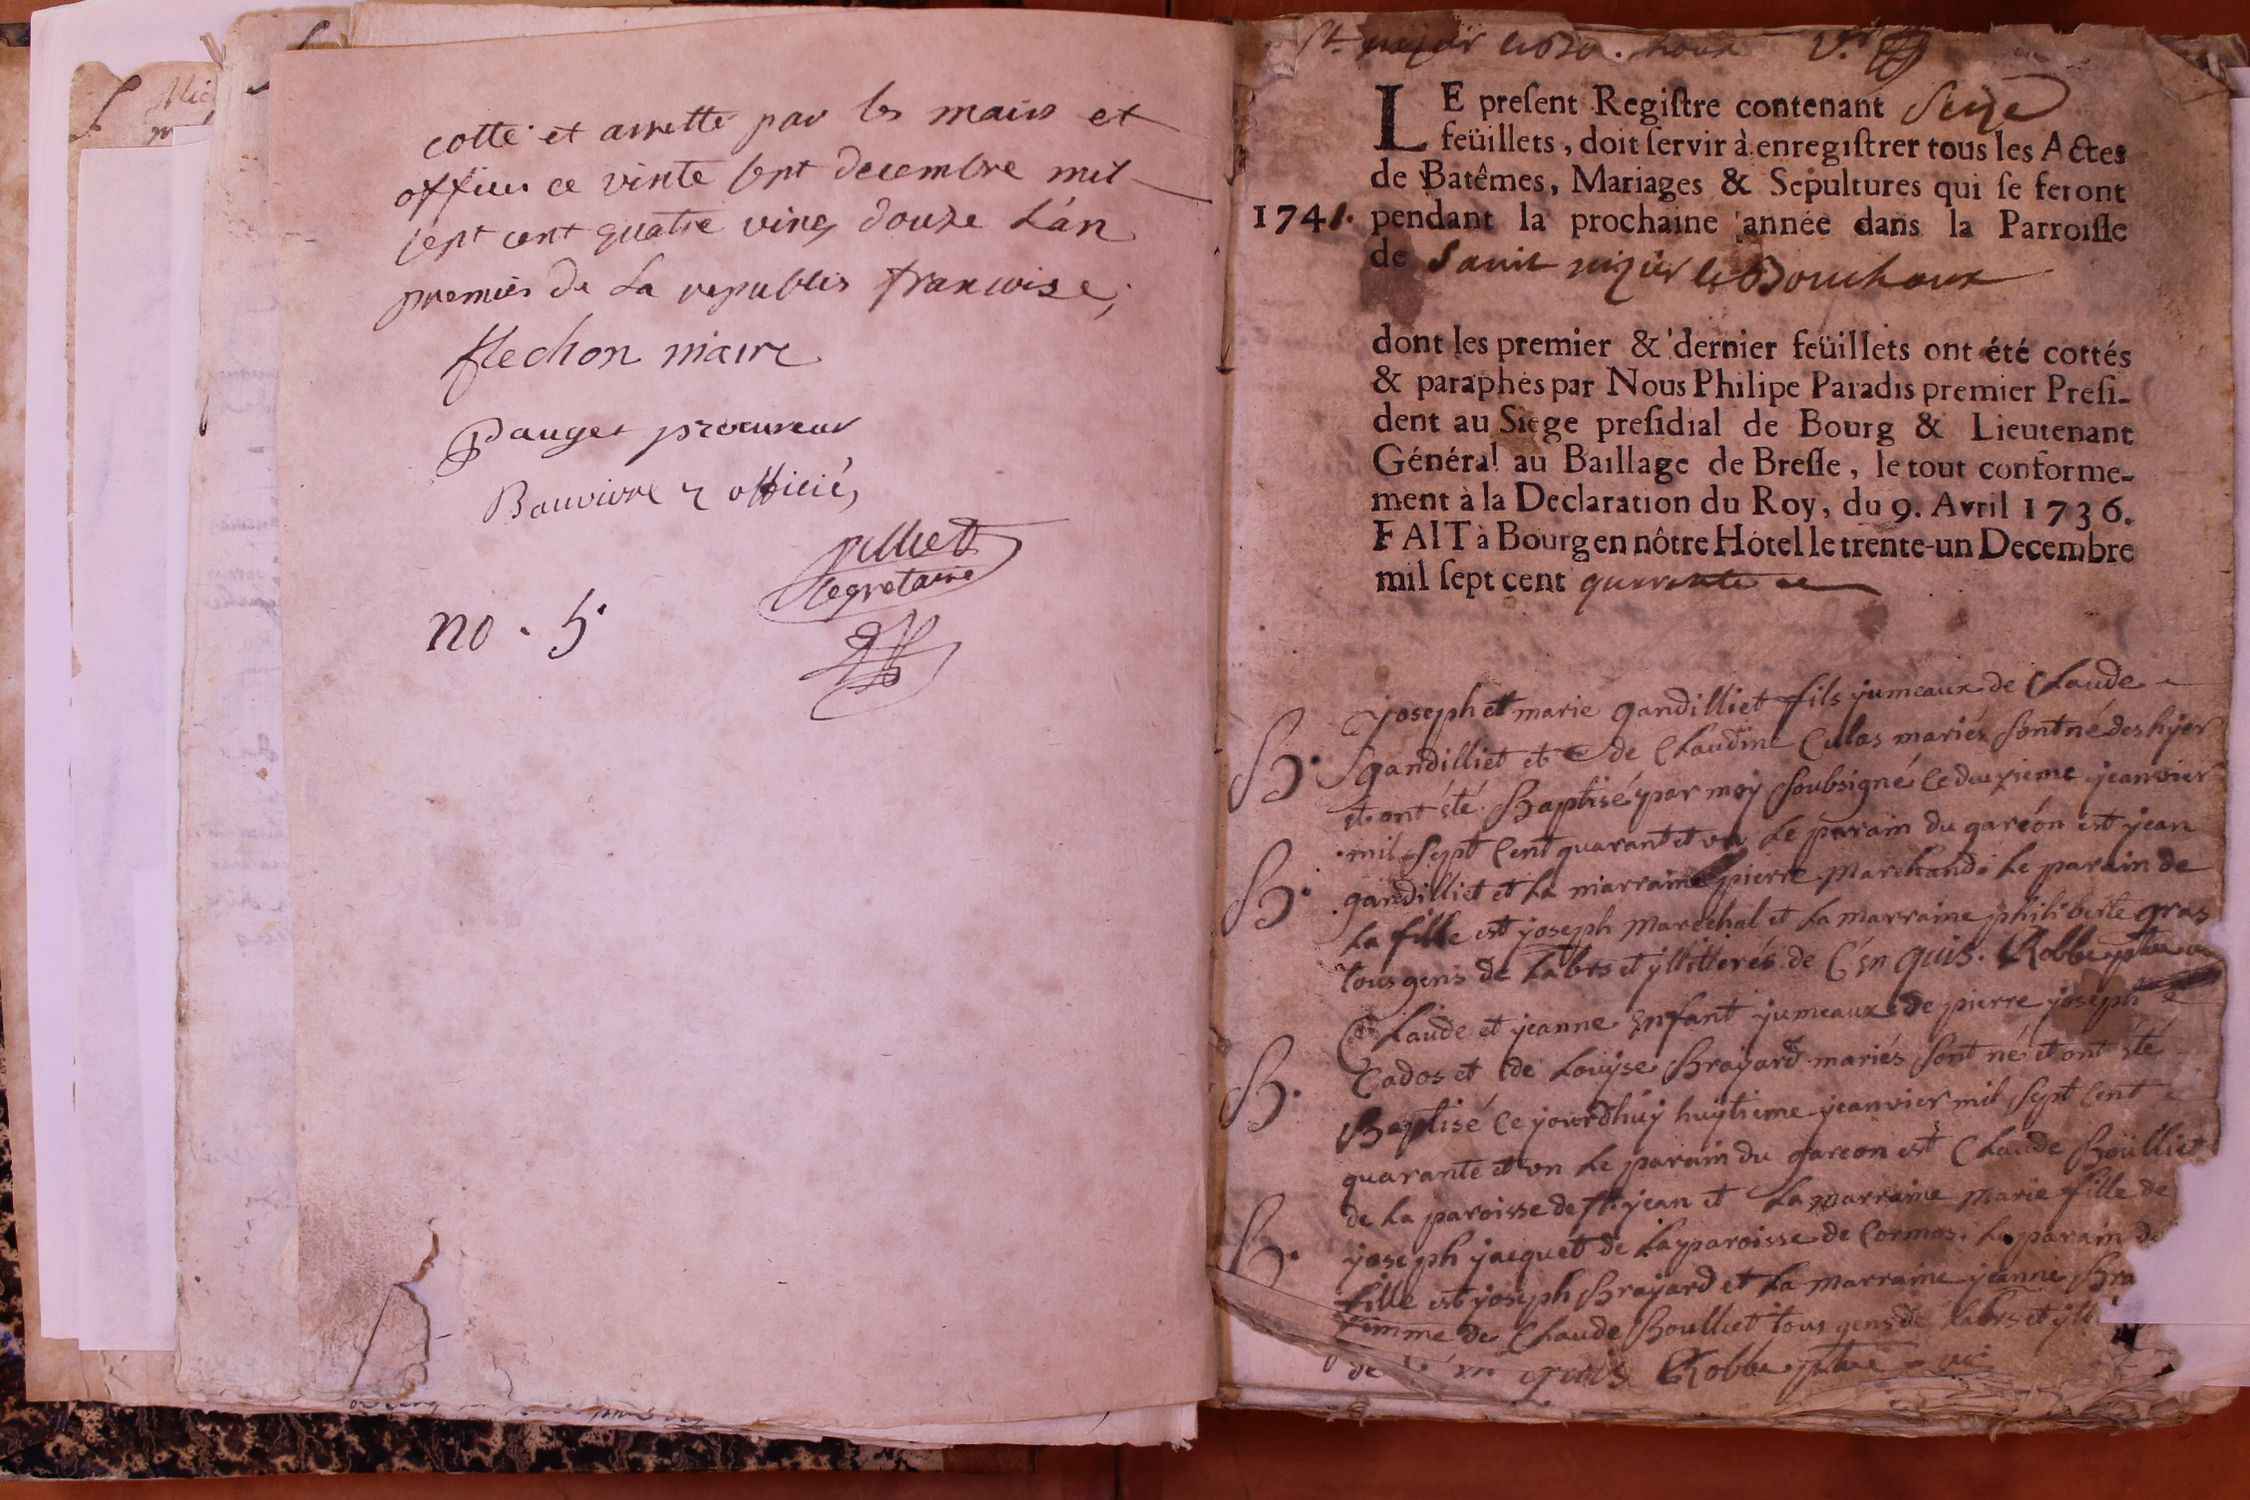 cotté et arretté par les mains et
officier ce vinte sept decembre mil
sept cent quatre ving douze L'an
premier de La republis francoise,
flechon maire
pauget procureur
Bauvivre officié,
pilliet
segretaire
no. 5.
St. nizier le Bou. houx
LE preſent Regiſtre contenant Seize
feüillets, doit ſervir à enregiſtrer tous les Actes
de Batêmes, Mariages & Sepultures qui ſe feront
1741. pendant la prochaine année dans la Parroiſſe
de Saint nizier le Bouchoux
dont les premier & dernier feüillets ont été cottés
& paraphés par Nous Philipe Paradis premier Preſi-
dent au Siege preſidial de Bourg & Lieutenant
Général au Baillage de Breſſe, le tout conforme-
ment à la Declaration du Roy, du 9. Avril 1736.
FAIT à Bourg en nôtre Hôtel le trente-un Decembre
mil ſept cent quarente
joseph et marie gandilliet fils jumeaux de Claude
B. gandilliet et de Claudine Culas mariés sont né des hÿer
et ont été Baptisé par moÿ soubsigné le deuxieme jeanvier
mil sept cent quarantet un Le parain du garçon est jean
B. gandilliet et La marraine pierre marchand. Le parain de
La fille est joseph marechal et La marraine philiberte gras
tous gens de Labrs et ÿllitterés de C'enquis. Robbe ptre
Claude et jeanne Enfant jumeaux de pierre joseph
Cados et de Louÿse Braÿard mariés sont né et ont été
B. Baptisé Ce jourdhuÿ huÿtieme jeanvier mil sept Cent
quarante et un Le parain du garcon est Claude Boulliet
de La paroisse de st. jean et La marraine marie fille de
B. joseph jacquet de La paroisse de Cormos. Le parain de
fille est joseph Braÿard et La marraine jeanne Bra
femme de Claude Boulliet tous gens de Labrs et ÿll
de quis Robbe ptre